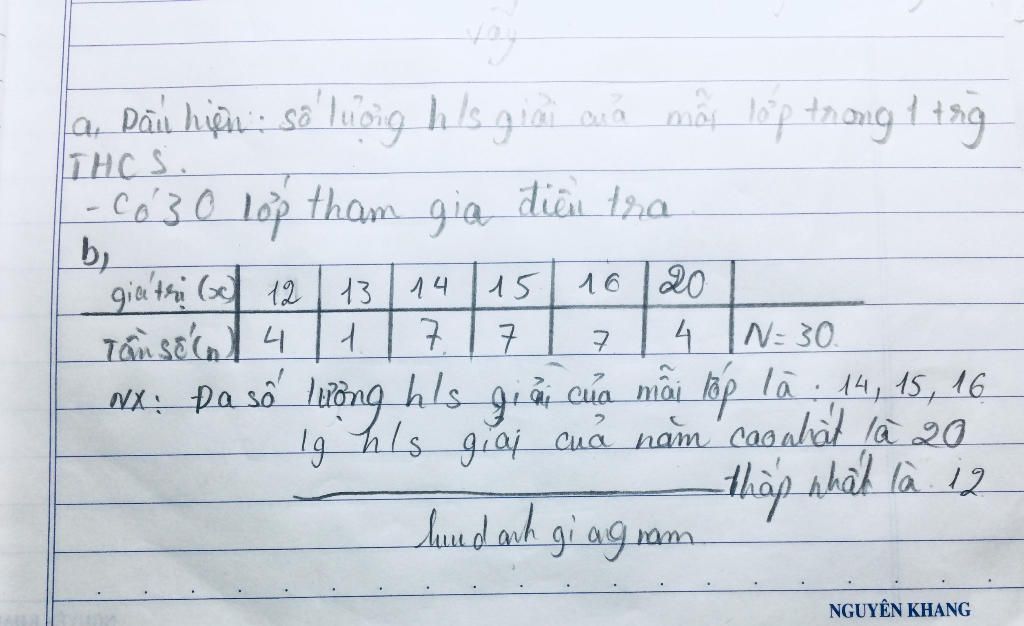 vẫy
a, Dấu hiện: số lượng h/s giải của mỗi lớp trong 1 trg
THCS.
- Có 30 lớp tham gia điều tra
b,
giá trị (x) 12 13 14 15 16 20
Tần số (n) 4 1 7 7 7 4 N = 30
NX: Đa số lượng h/s giải của mỗi lớp là: 14, 15, 16
lg h/s giải cuả năm cao nhất là 20
thấp nhất là 12
NGUYÊN KHANG